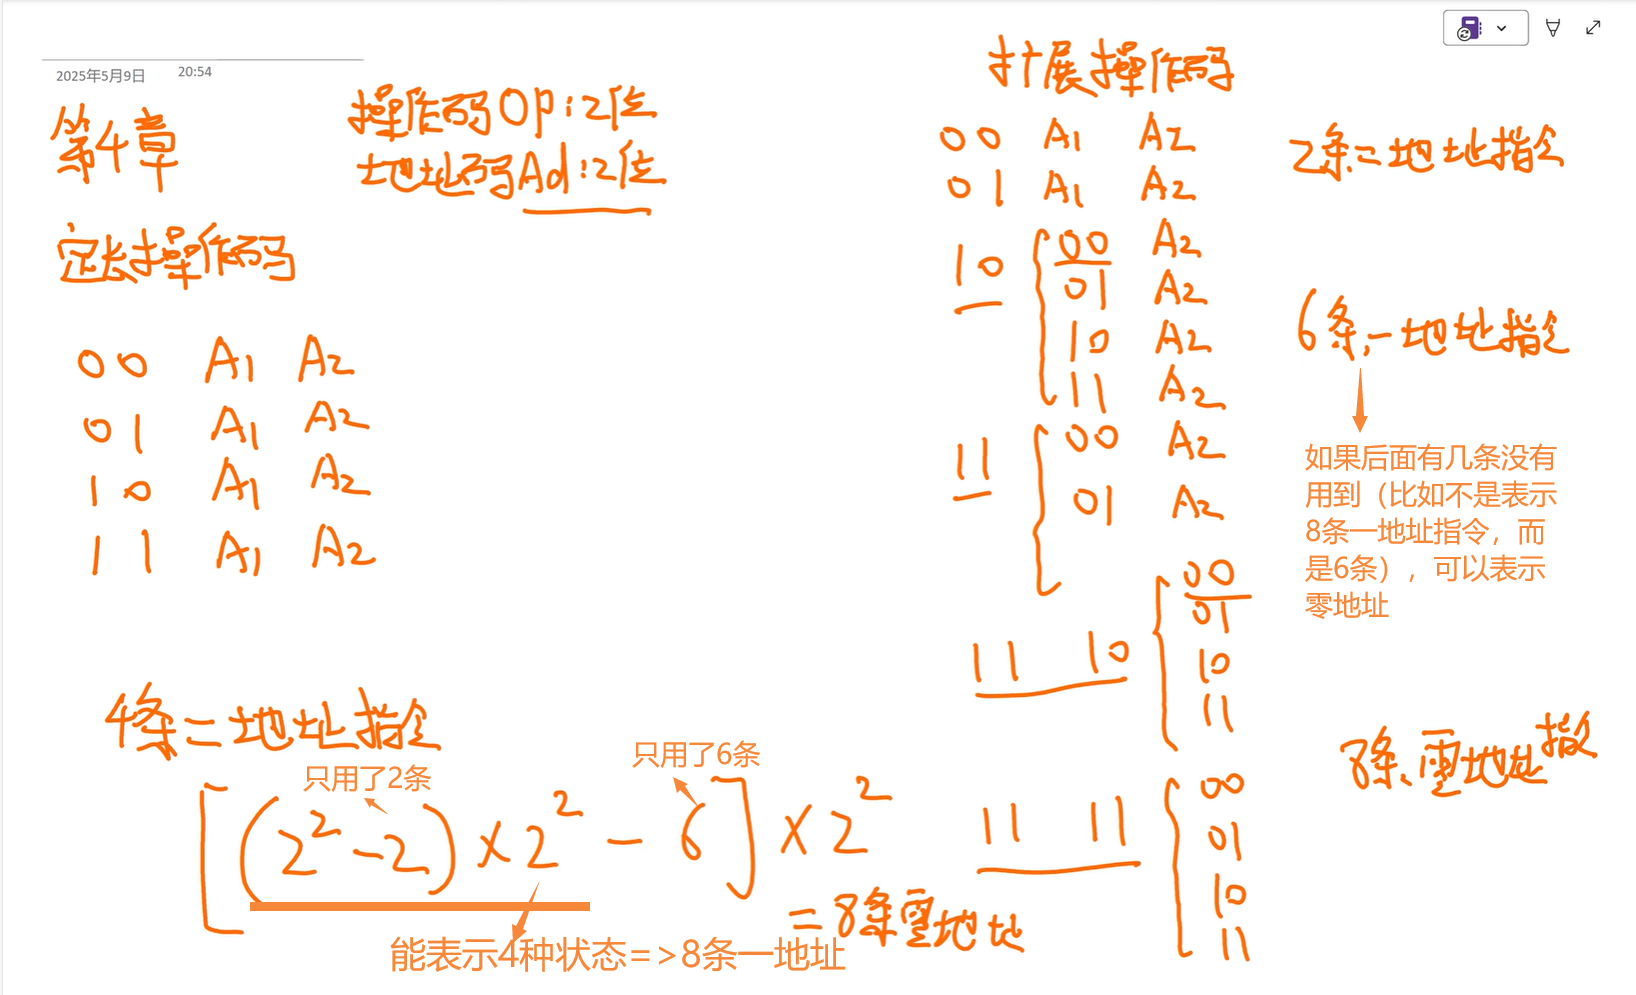 2025年5月9日 20:54
第4章
操作码OP:2位
地址码Ad:2位
定长操作码
00 A1 A2
01 A1 A2
10 A1 A2
11 A1 A2
4条二地址指令
只用了2条
只用了6条
[(2²-2)×2²-6]×2²
=8条零地址
能表示4种状态=>8条一地址
扩展操作码
00 A1 A2
01 A1 A2
2条二地址指令
10 { 00 A2
01 A2
10 A2
11 A2
6条一地址指令
11 { 00 A2
01 A2
如果后面有几条没有
用到（比如不是表示
8条一地址指令，而
是6条），可以表示
零地址
11 10 { 00
01
10
11
8条零地址指令
11 11 { 00
01
10
11